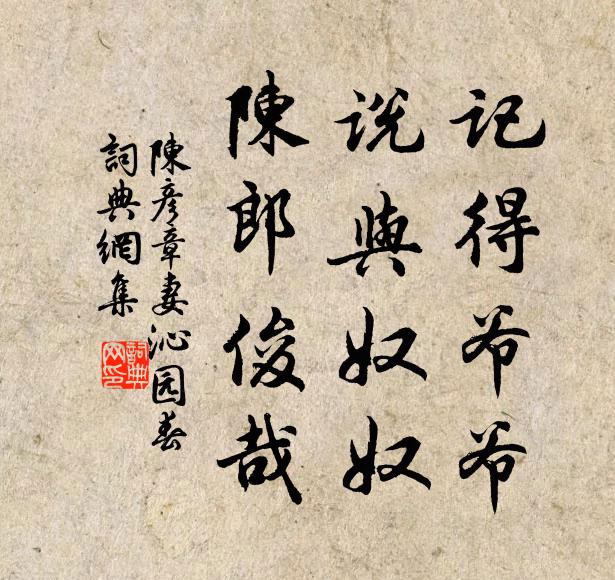 记得爷爷
说与奴奴
陳郎俊哉
陳彦章妻沁园春
詞典網集
詞典网印